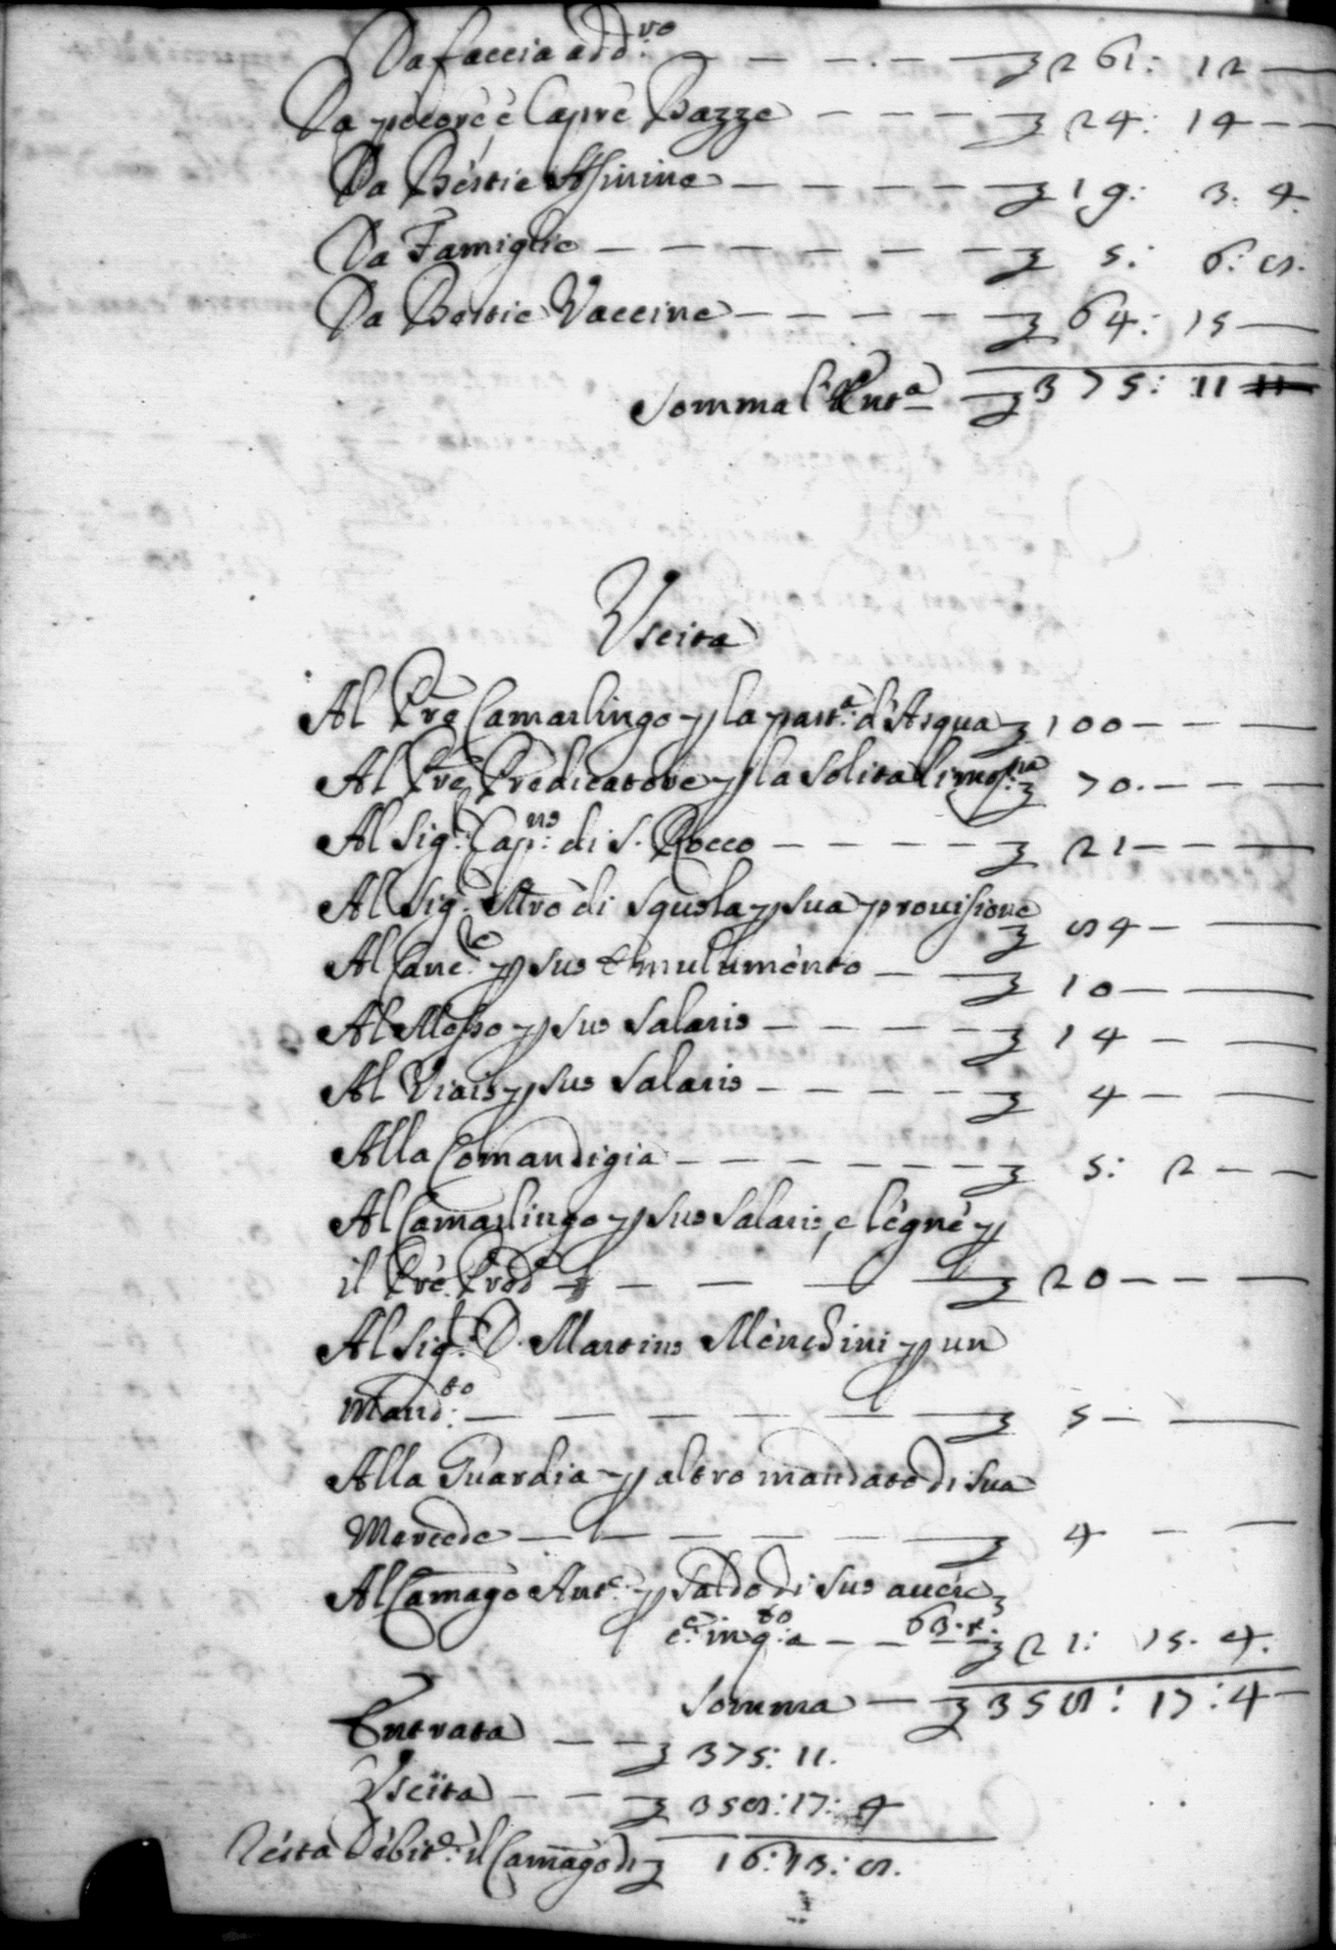 Da faccia add:vo — — — ʒ 261: 12 —
Da pecore, e Capre Bazze — — — ʒ 24: 14 — —
Da Bestie Asinine — — — — ʒ 19: 3. 4.
Da Famiglie — — — — — ʒ 5: 6: 8.
Da Bestie Vaccine — — — — ʒ 64: 15 —
Somma l'Enta — ʒ 375: 11 11
Uscita
Al Pre Camarlingo p la parta: d'Acqua ʒ 100 — — —
Al Pre Predicatore p la solita limosna: ʒ 70. — — —
Al Sigr: Capno: di S. Rocco — — — — ʒ 21 — — —
Al Sigr. Mro di Squola p sua provisione ʒ 84 — —
Al Cance: p suo Emulumento — — ʒ 10 — —
Al Messo p suo Salario — — — — ʒ 14 — —
Al Viaio p suo Salario — — — — ʒ 4 — —
Alla Comandigia — — — — — ʒ 5: 2 — —
Al Camarlingo p suo Salario, e legne p
il Pre. Prede — — — — ʒ 20 — — —
Al Sigr: D. Martino Menchini p un
Mandto: — — — — — ʒ 5 — —
Alla Guardia p altro mandato di sua
Mercede — — — — — ʒ 4 — —
Al Camago Ante: p saldo di suo avere
— — ʒ 21: 15. 4.
Somma — ʒ 358: 17: 4 —
Entrata — — ʒ 375: 11.
Uscita — — — ʒ 358: 17: 4
Resta Debite: il Camago di ʒ 16: 13: 8.